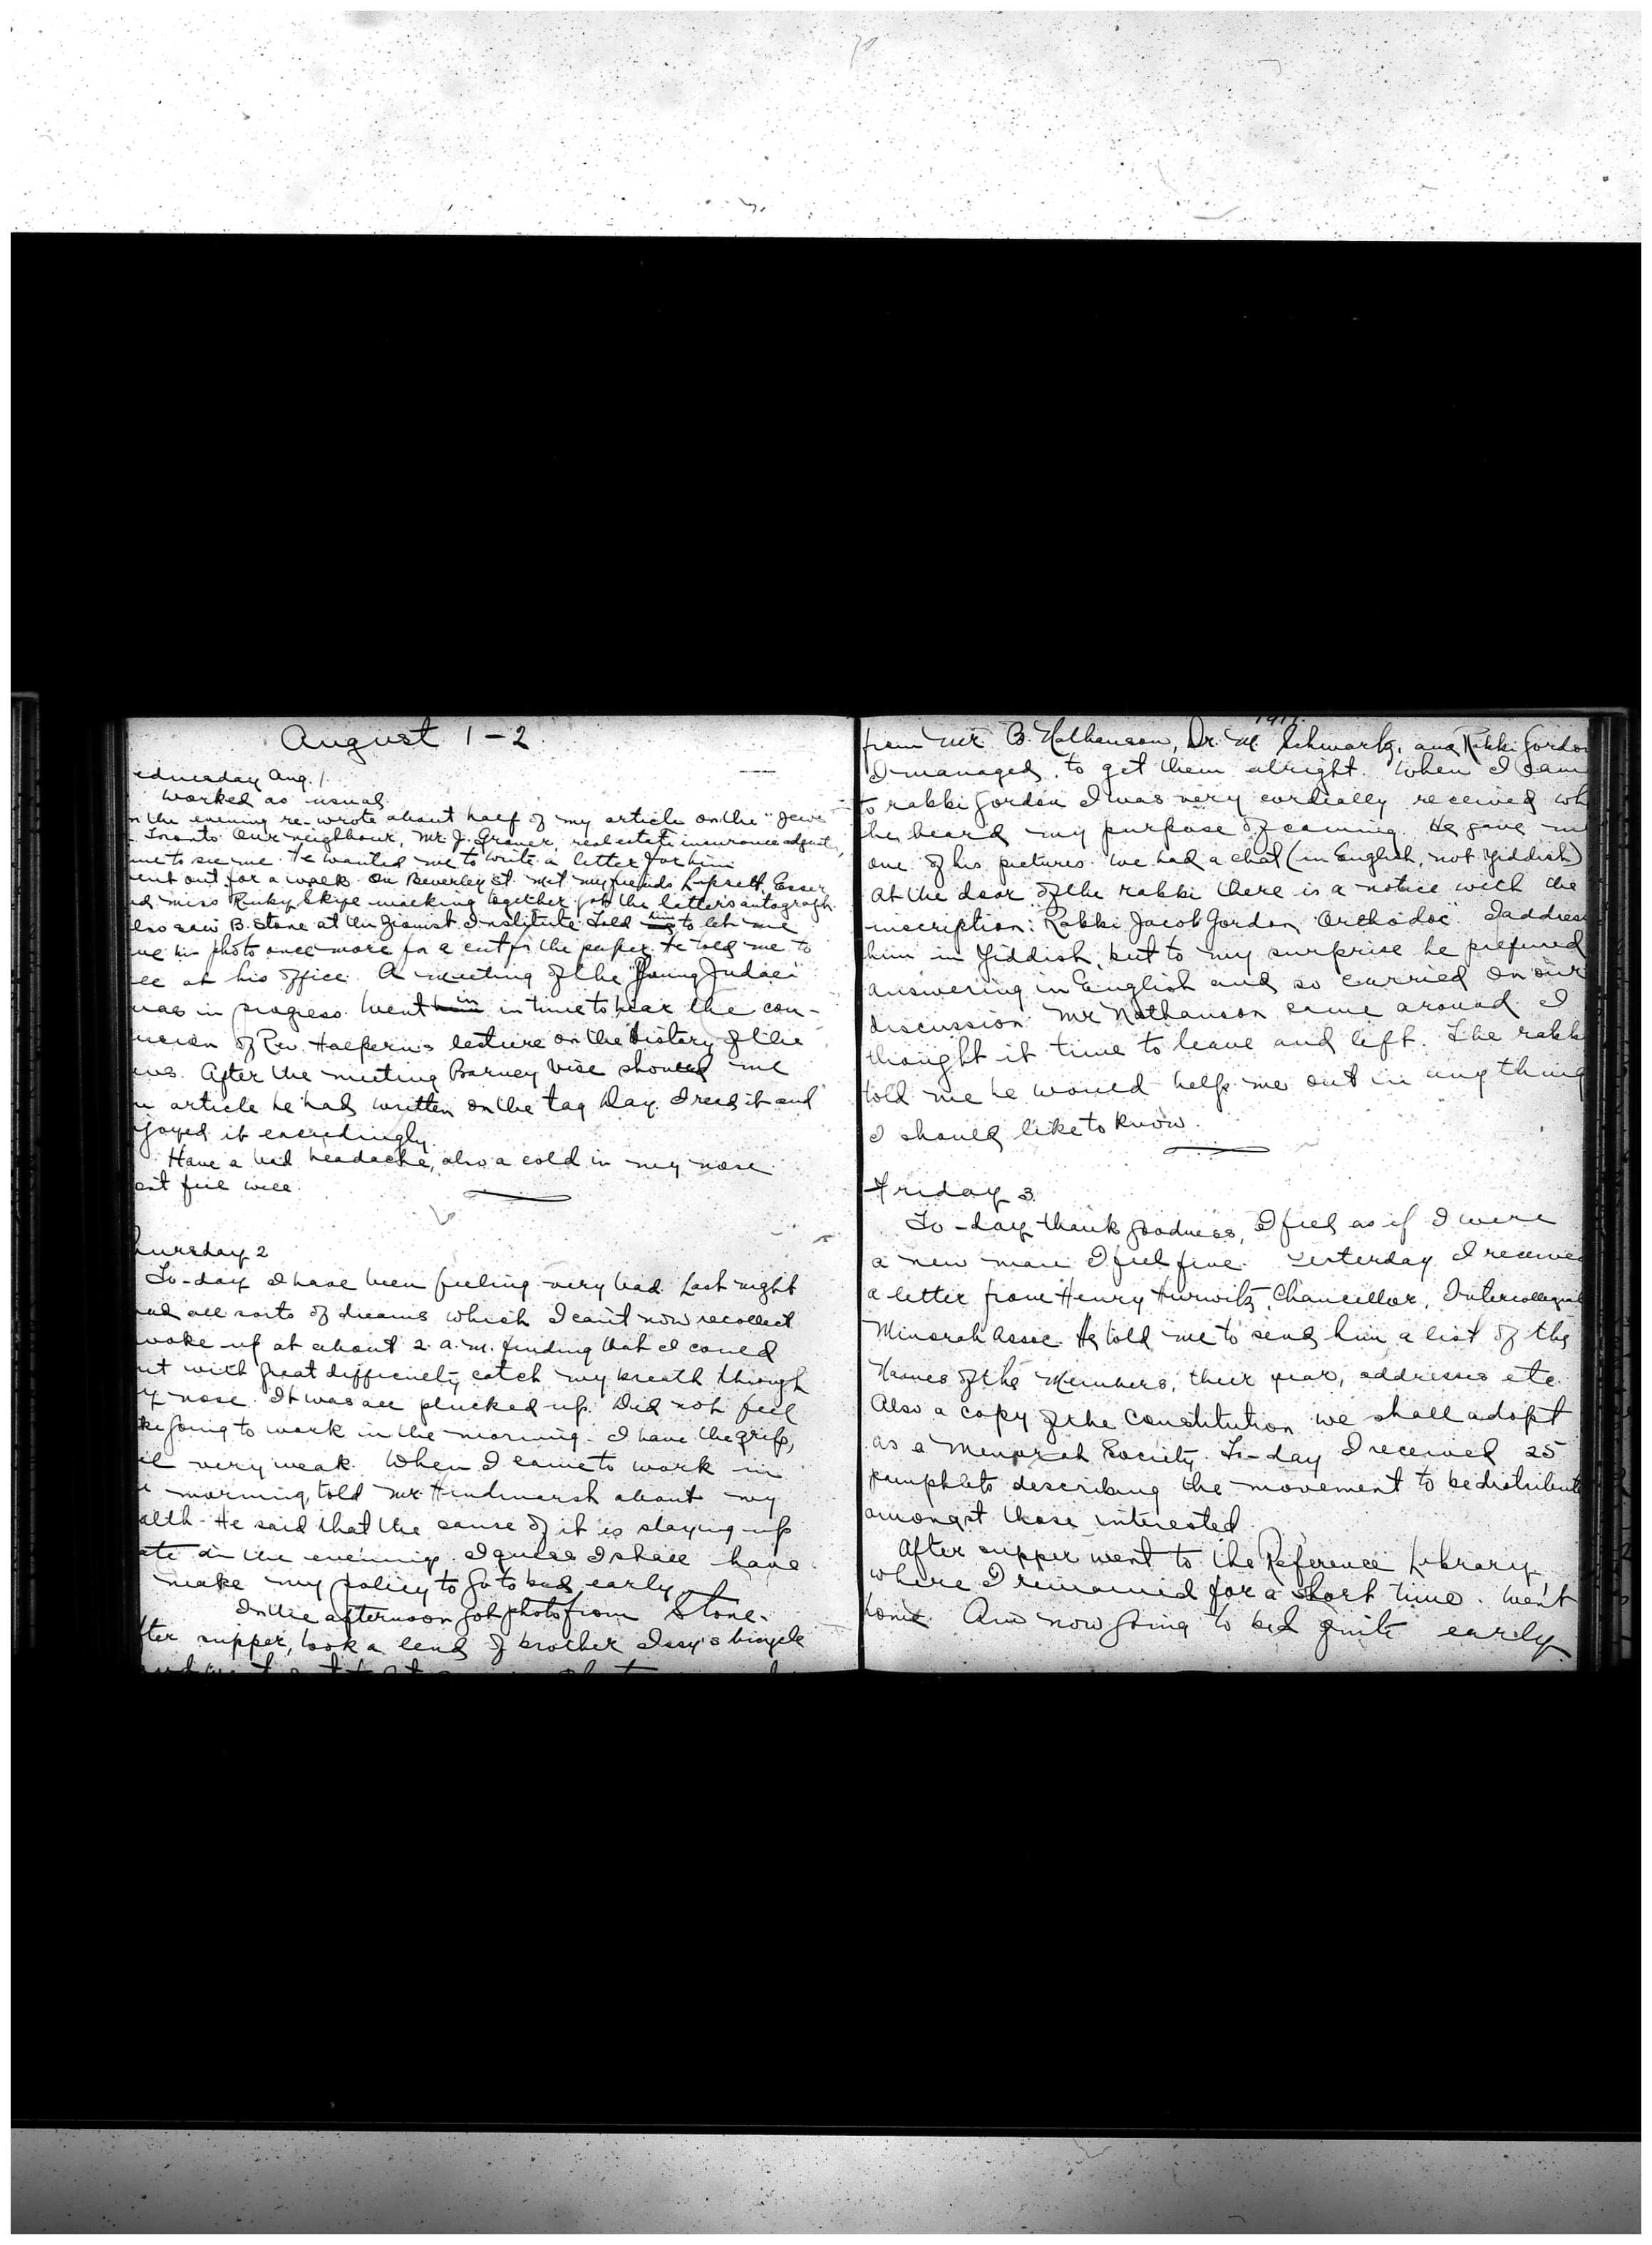 August 1-2
ednesday Aug. 1.
Worked as usual.
n the evening re-wrote about half of my article on the "Jews
Toronto. Our neighbour, Mr. J. Graner, real estate insurance adjuster,
me to see me. He wanted me to write a letter for him.
ent out for a walk. On Beverley St. met my friends Lipsett, Esser
nd Miss Rinky Skye walking together. Got the latter's autograph.
lso saw B. Stone at the Zionist Institute. Told him to let me
ve his photo once more for a cut for the paper. He told me to
ee at his office. A meeting of the "Young Judaei"
was in progress. Went in in time to hear the con-
usion of Rev. Halpern's lecture on the History of the
ews. After the meeting Barney Vise showed me
n article he had written on the Tag Day. I read it and
joyed it exceedingly.
Have a bad headache, also a cold in my nose
ont feel well.
hursday 2
To-day I have been feeling very bad. Last night
had all sorts of dreams which I can't now recollect.
woke up at about 2 a.m. finding that I could
ut with great difficulty catch my breath through
y nose. It was all plucked up. Did not feel
ke going to work in the morning. I have the grip,
el very weak. When I came to work in
e morning, told Mr. Hindmarsh about my
alth. He said that the cause of it is staying up
ate in the evening. I guess I shall have
make my policy to go to bed early.
In the afternoon got photo from Stone.
fter supper, took a lend of brother Issy's bicycle
1917.
from Mr. B. Nathanson, Dr. M. Schwartz, and Rabbi Gordon
I managed to get them alright. When I came
to rabbi Gordon I was very cordially received wh
he heard my purpose of coming. He gave me
one of his pictures. We had a chat (in English, not Yiddish)
At the door of the rabbi there is a notice with the
inscription: "Rabbi Jacob Gordon, Orthodoc". I address
him in Yiddish, but to my surprise he prefered
answering in English and so carried on our
discussion. Mr Nathanson came around. I
thought it time to leave and left. The rabbi
told me he would help me out in anything
I should like to know.
Friday 3.
To-day thank goodness, I feel as if I were
a new man. I feel fine. Yesterday I received
a letter from Henry Hurwitz, Chancellor, Intercollegiat
Minorah Assoc. He told me to send him a list of the
names of the Members, their year, addresses etc.
Also a copy of the Constitution we shall adopt
as a Menorah Society. To-day I received 25
pamphlets describing the movement to be distribute
amongst those interested.
After supper went to the Reference Library
where I remained for a short time. Went
home. Am now going to bed quite early.